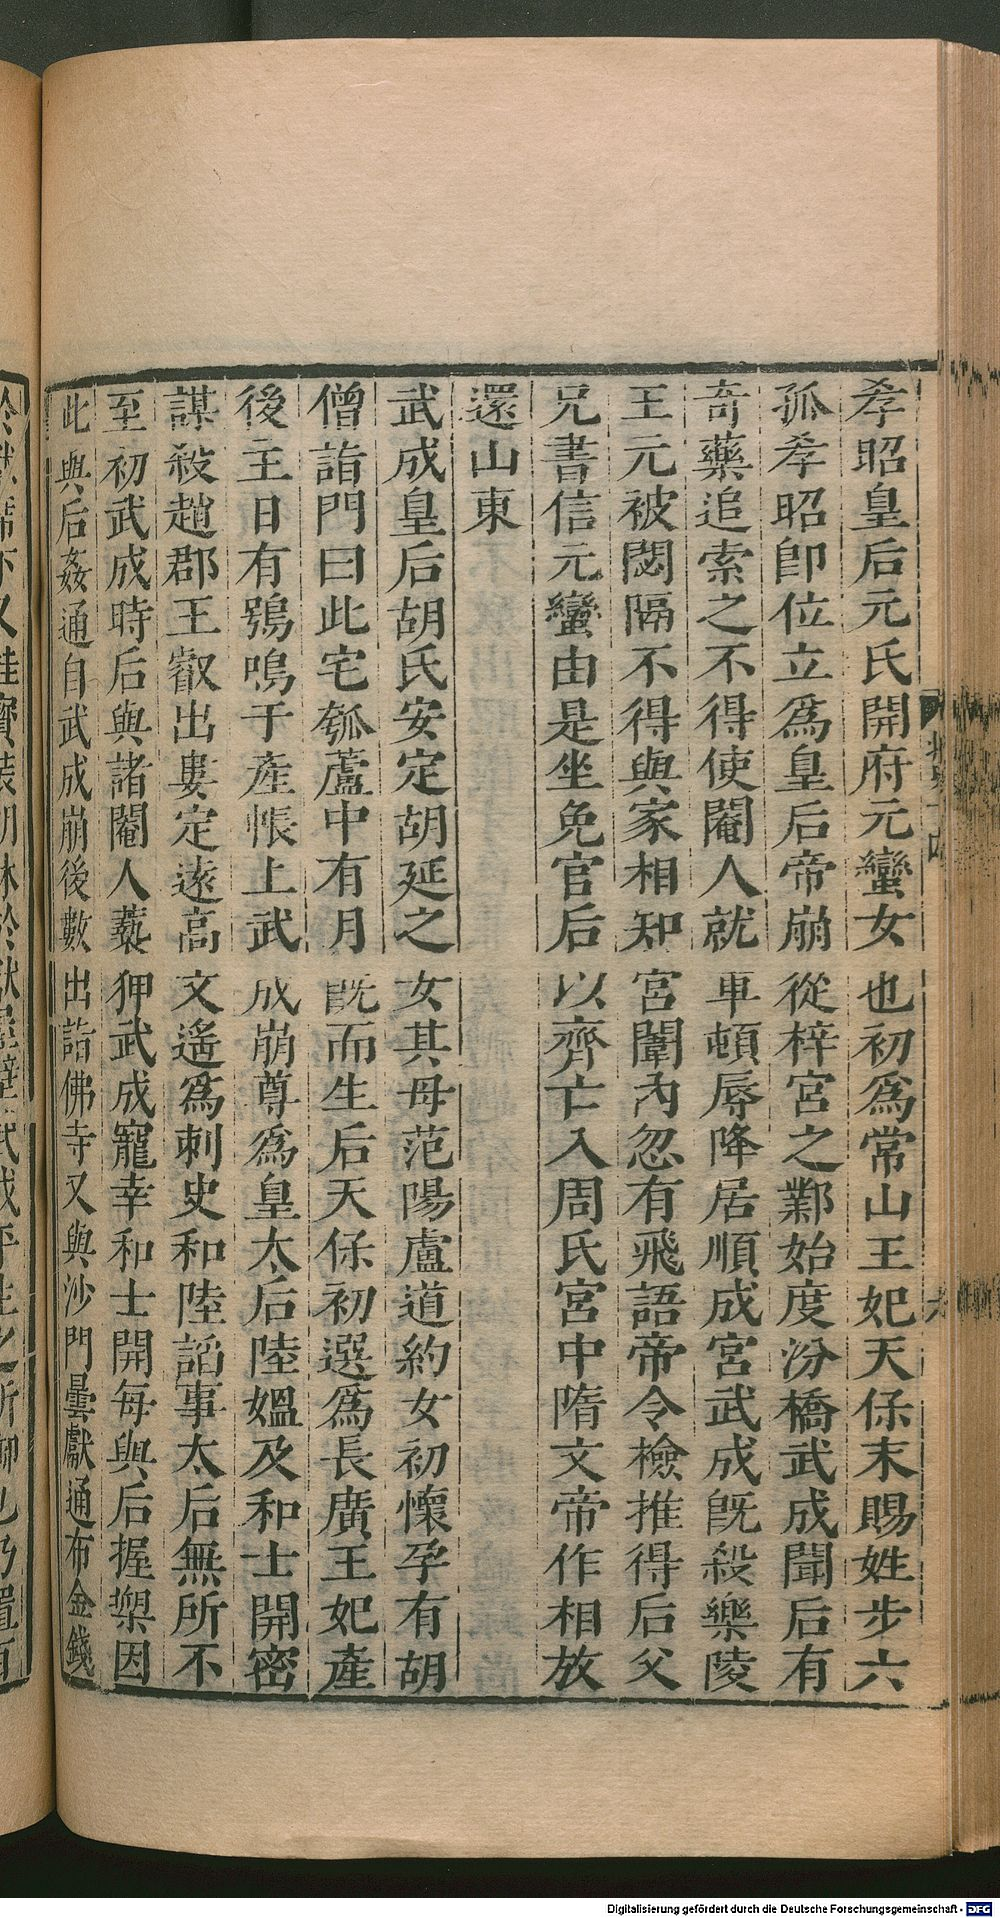 孝昭皇后元氏開府元蠻女也初爲常山王妃天保末賜姓步六
孤孝昭卽位立爲皇后帝崩從梓宮之鄴始度汾橋武成聞后有
奇藥追索之不得使閹人就車頓辱降居順成宮武成旣殺樂陵
王元被閟隔不得與家相知宮闈內忽有飛語帝令檢推得后父
兄書信元蠻由是坐免官后以齊亡入周氏宮中隋文帝作相放
還山東
武成皇后胡氏安定胡延之女其母范陽盧道約女初懷孕有胡
僧詣門曰此宅瓠蘆中有月旣而生后天保初選爲長廣王妃產
後主日有鴞鳴于產帳上武成崩尊爲皇太后陸媼及和士開密
謀殺趙郡王叡出婁定遠高文遙爲刺史和陸謟事太后無所不
至初武成時后與諸閹人䙝狎武成寵幸和士開每與后握槊因
此與后姦通自武成崩後數出詣佛寺又與沙門曇獻通布金錢
Digitalisierung gefördert durch die Deutsche Forschungsgemeinschaft - DFG